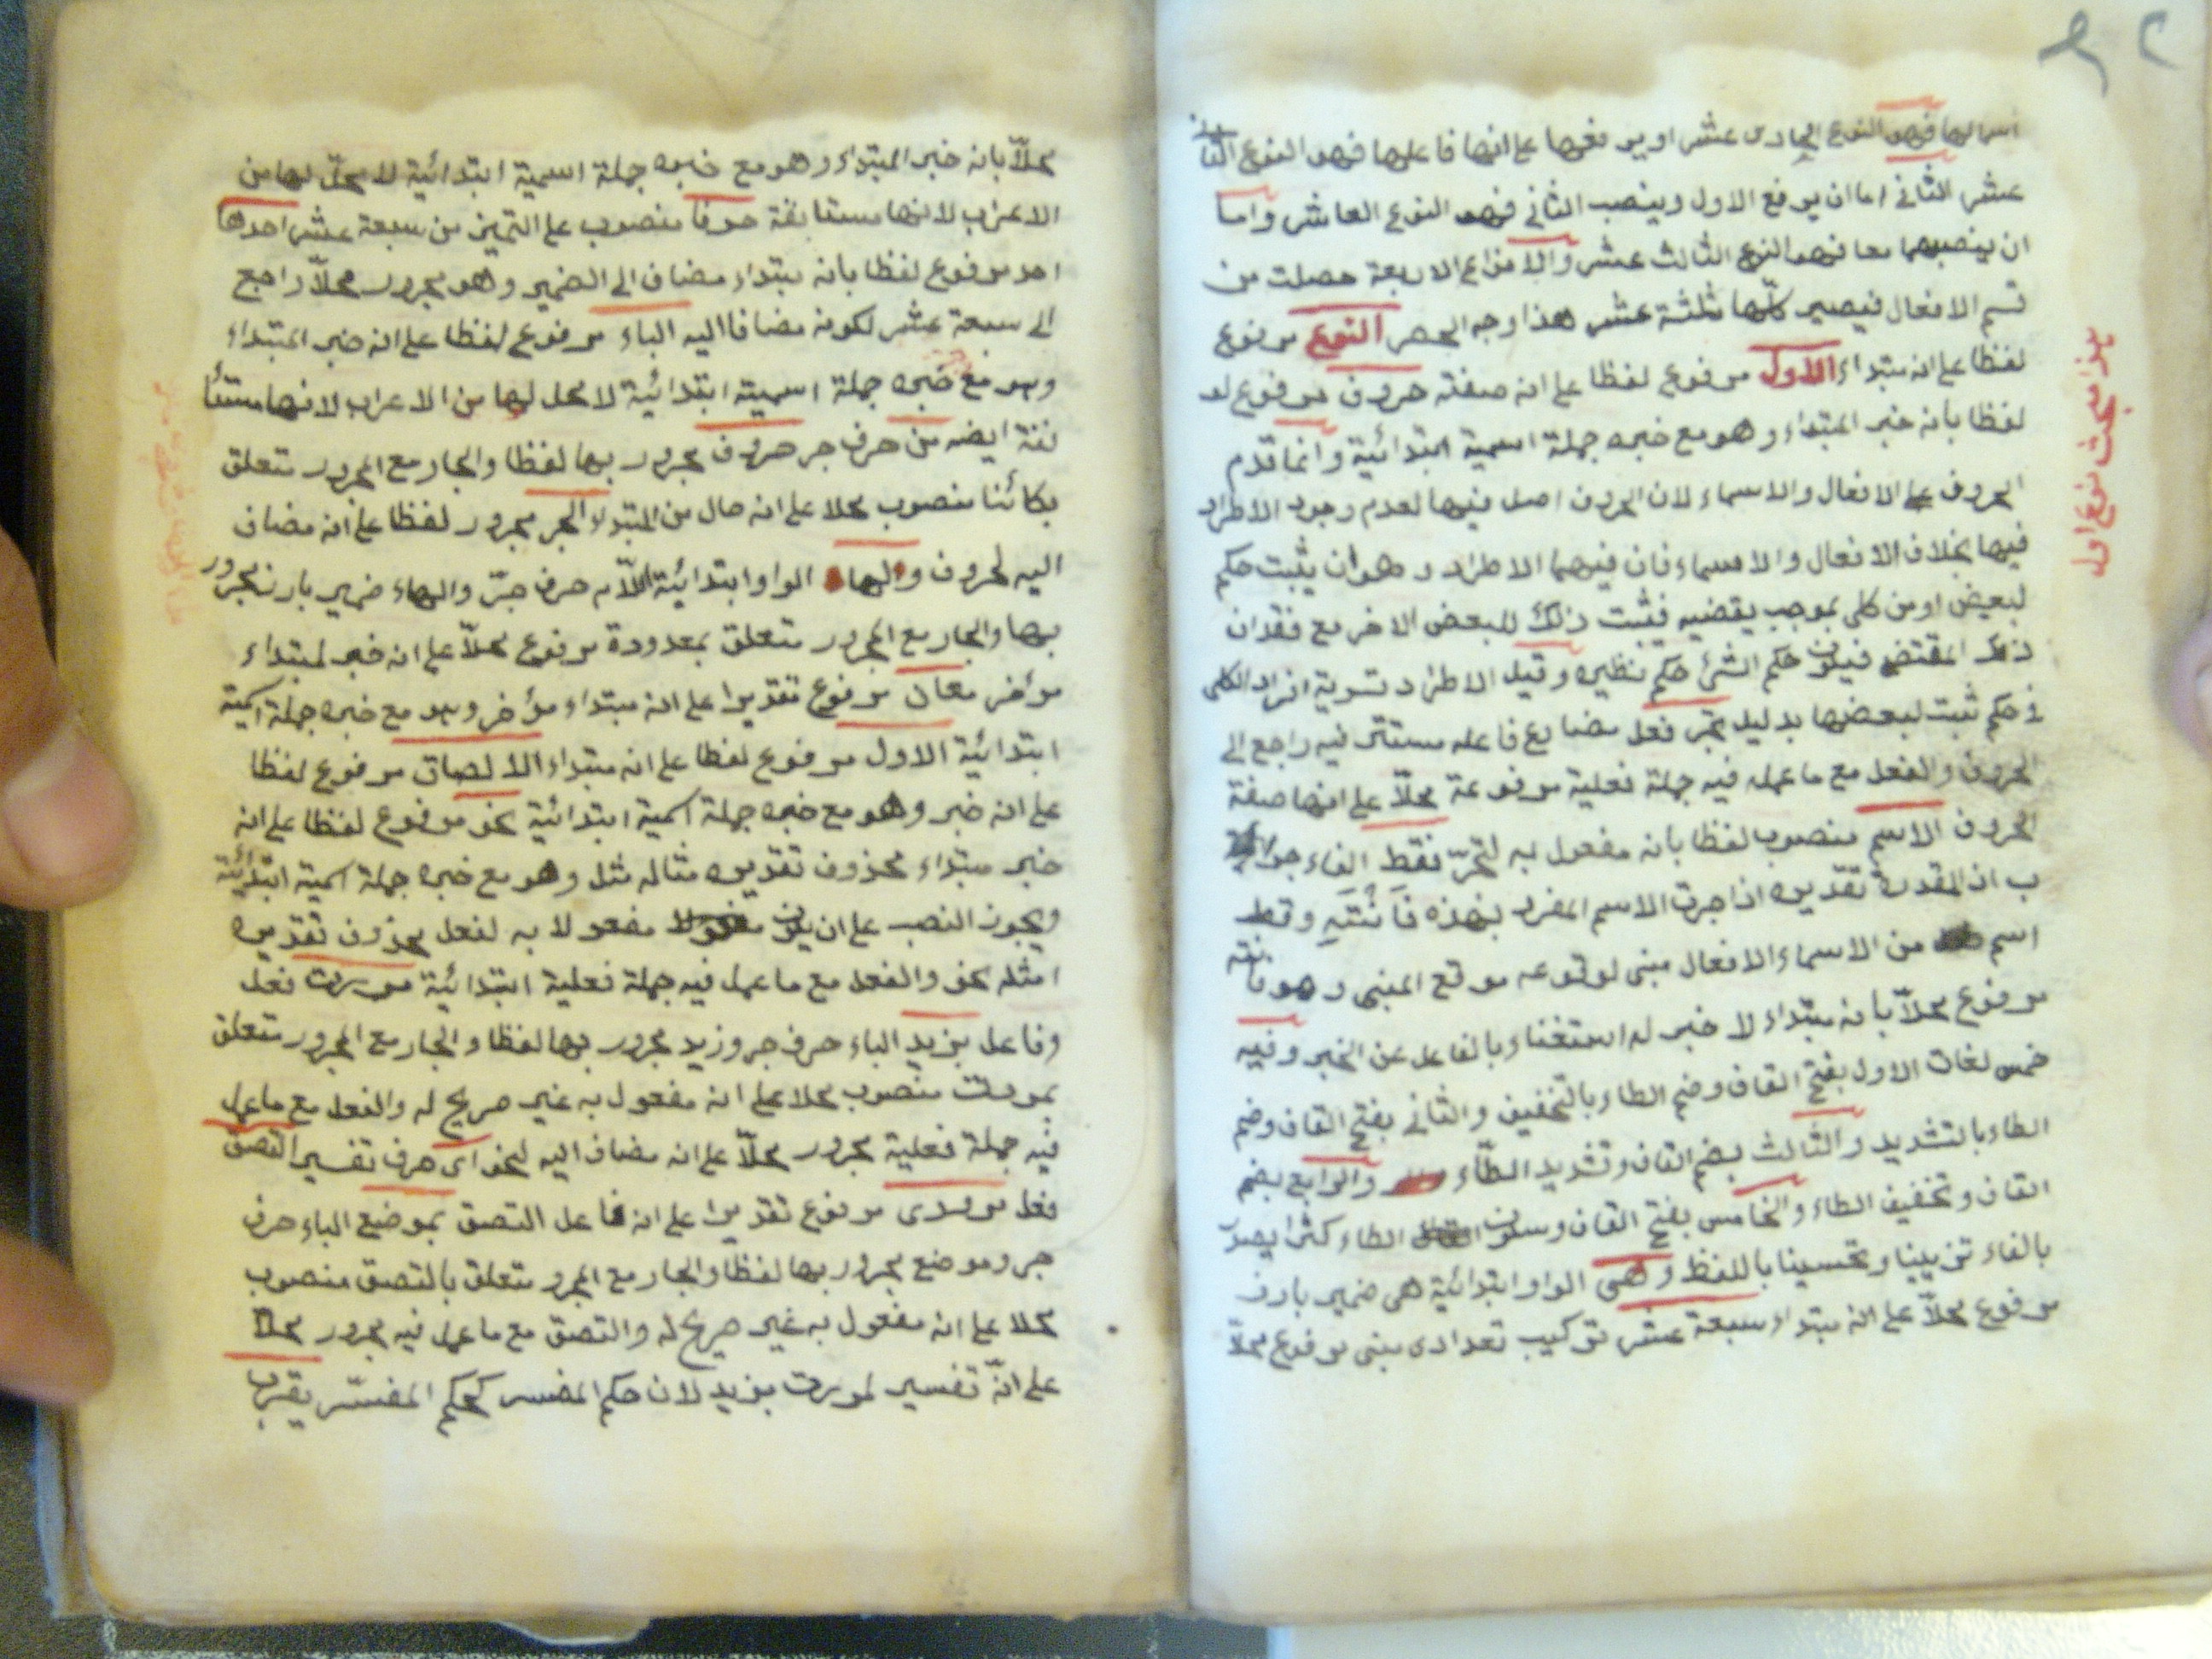 اسمالها فهو النوع الحادى عشر او يرفعها على انها فاعلها فهو النوع الثانى
عشر الثانى اما ان يرفع الاول وينصب الثانى فهو النوع العاشر واما
ان ينصبهما معا فهو النوع الثالث عشر والانواع الاربعة حصلت من
قسم الافعال فيصير كلها ثلثة عشر هذا وجه الحصر النوع مرفوع
لفظا على انه مبتداء الاول مرفوع لفظا على انه صفته حروف مرفوع
لفظا بأنه خبر المبتداء وهو مع خبره جملة اسمية ابتدائية وانما قدم
الحروف على الافعال والاسماء لان الحروف اصل فيها لعدم وجود الاطراد
فيها بخلاف الافعال والاسماء فان فيهما الاطراد وهو ان يثبت حكم
لبعض او من كلى بموجب يقضيه فثبت ذلك للبعض الاخر مع فقدان
ذلك المقتضى فيكون حكم الشئ حكم نظيره وقيل الاطراد تسوية افراد الكلى
فى حكم ثبت لبعضها بدليل تجر فعل مضارع فاعله مستتر فيه راجع الى
الحروف والفعل مع ما عمله فيه جملة فعلية مرفوعة محلاّ على انها صفة
الحروف الاسم منصوب لفظا بانه مفعول به لتجرّ فقط الفاء جوا
ب ان المقدرة تقديره اذا جرت الاسم المفرد بهذه فَانْتَهِ وقط
اسم من الاسماء الافعال مبنى لوقوعه موقع المبنى وهو فانته
مرفوع محلاّ بأنه مبتداء لا خبر له استغناء بالفاعل عن الخبر وفيه
خمس لغات الاول بفتح القاف وضم الطاء بالتخفيف والثانى بفتح القاف وضم
الطاء بالتشديد والثالث بضم القاف وتشديد الطّاء والرابع بضم
القاف وتخفيف الطاء والخامس بفتح القاف وسكون الطاء كثرا يصدر
بالفاء تزيينا وتحسينا باللفظ وهى الواو ابتدائية هى ضمير بارز
مرفوع محلاّ على انه مبتداء سبعة عشر تركيب تعدادى مبنى مرفوع محلاّ
هذا مبحث نوع اول
محلاّ بانه خبر المبتداء وهو مع خبره جملة اسمية ابتدائية لا محلّ لها من
الاعراب لانها مستانفة حرفا منصوب على التميز من سبعة عشر احدها
احد مرفوع لفظا بأنه مبتداء مضاف الى الضمير وهو مجرور محلاّ راجع
الى سبعة عشر لكونه مضافا اليه الباء مرفوع لفظا على انه خبر المبتداء
وهو مع خبره جملة اسمية ابتدائية لا محل لها من الاعراب لانها مستأ
نفة ايضه من حرف جر حروف مجرور بها لفظا والجار مع المجرور متعلق
بكائنا منصوب محلا على انه حال من المبتداء الجر مجرور لفظا على انه مضاف
اليه لحروف ولها الواو ابتدائية اللاّم حرف جرّ والهاء ضمير بارز مجرور
بها والجار مع المجرور متعلق بمعدودة مرفوع محلاّ على انه خبر لمبتداء
مؤخر معان مرفوع تقديرا على انه مبتداء مؤخر وهو مع خبره جملة اسمية
ابتدائية الاول مرفوع لفظا على انه مبتداء الالصاق مرفوع لفظا
على انه خبر وهو مع خبره جملة اسمية ابتدائية نحو مرفوع لفظا على انه
خبر مبتداء محذوف تقديره مثاله مثل وهو مع خبره جملة اسمية ابتدائية
ويجوز النصب على ان يكون مفعولا به لفعل محذوف تقديره
امثله نحو والفعل مع ما عمل فيه جملة فعلية ابتدائية مررت فعل
وفاعل بزيد الباء حرف جر وزيد مجرور بها لفظا والجار مع المجرور متعلق
بمررت منصوب محلا على انه مفعول به غير صريح له والفعل مع ما عمل
فيه جملة فعلية مجرور محلاّ على انه مضاف اليه لنحو اى حرف تفسير التصق
فعل مرورى مرفوع تقديرا على انه فاعل التصق بموضع الباء حرف
جر وموضع مجرور بها لفظا والجار مع المجرور متعلق بالتصق منصوب
محلا على انه مفعول به غير صريح له والتصق مع ما عمل فيه مجرور محلا
على انّه تفسير لمررت بزيد لان حكم المفسر كحكم المفسّر يقرب